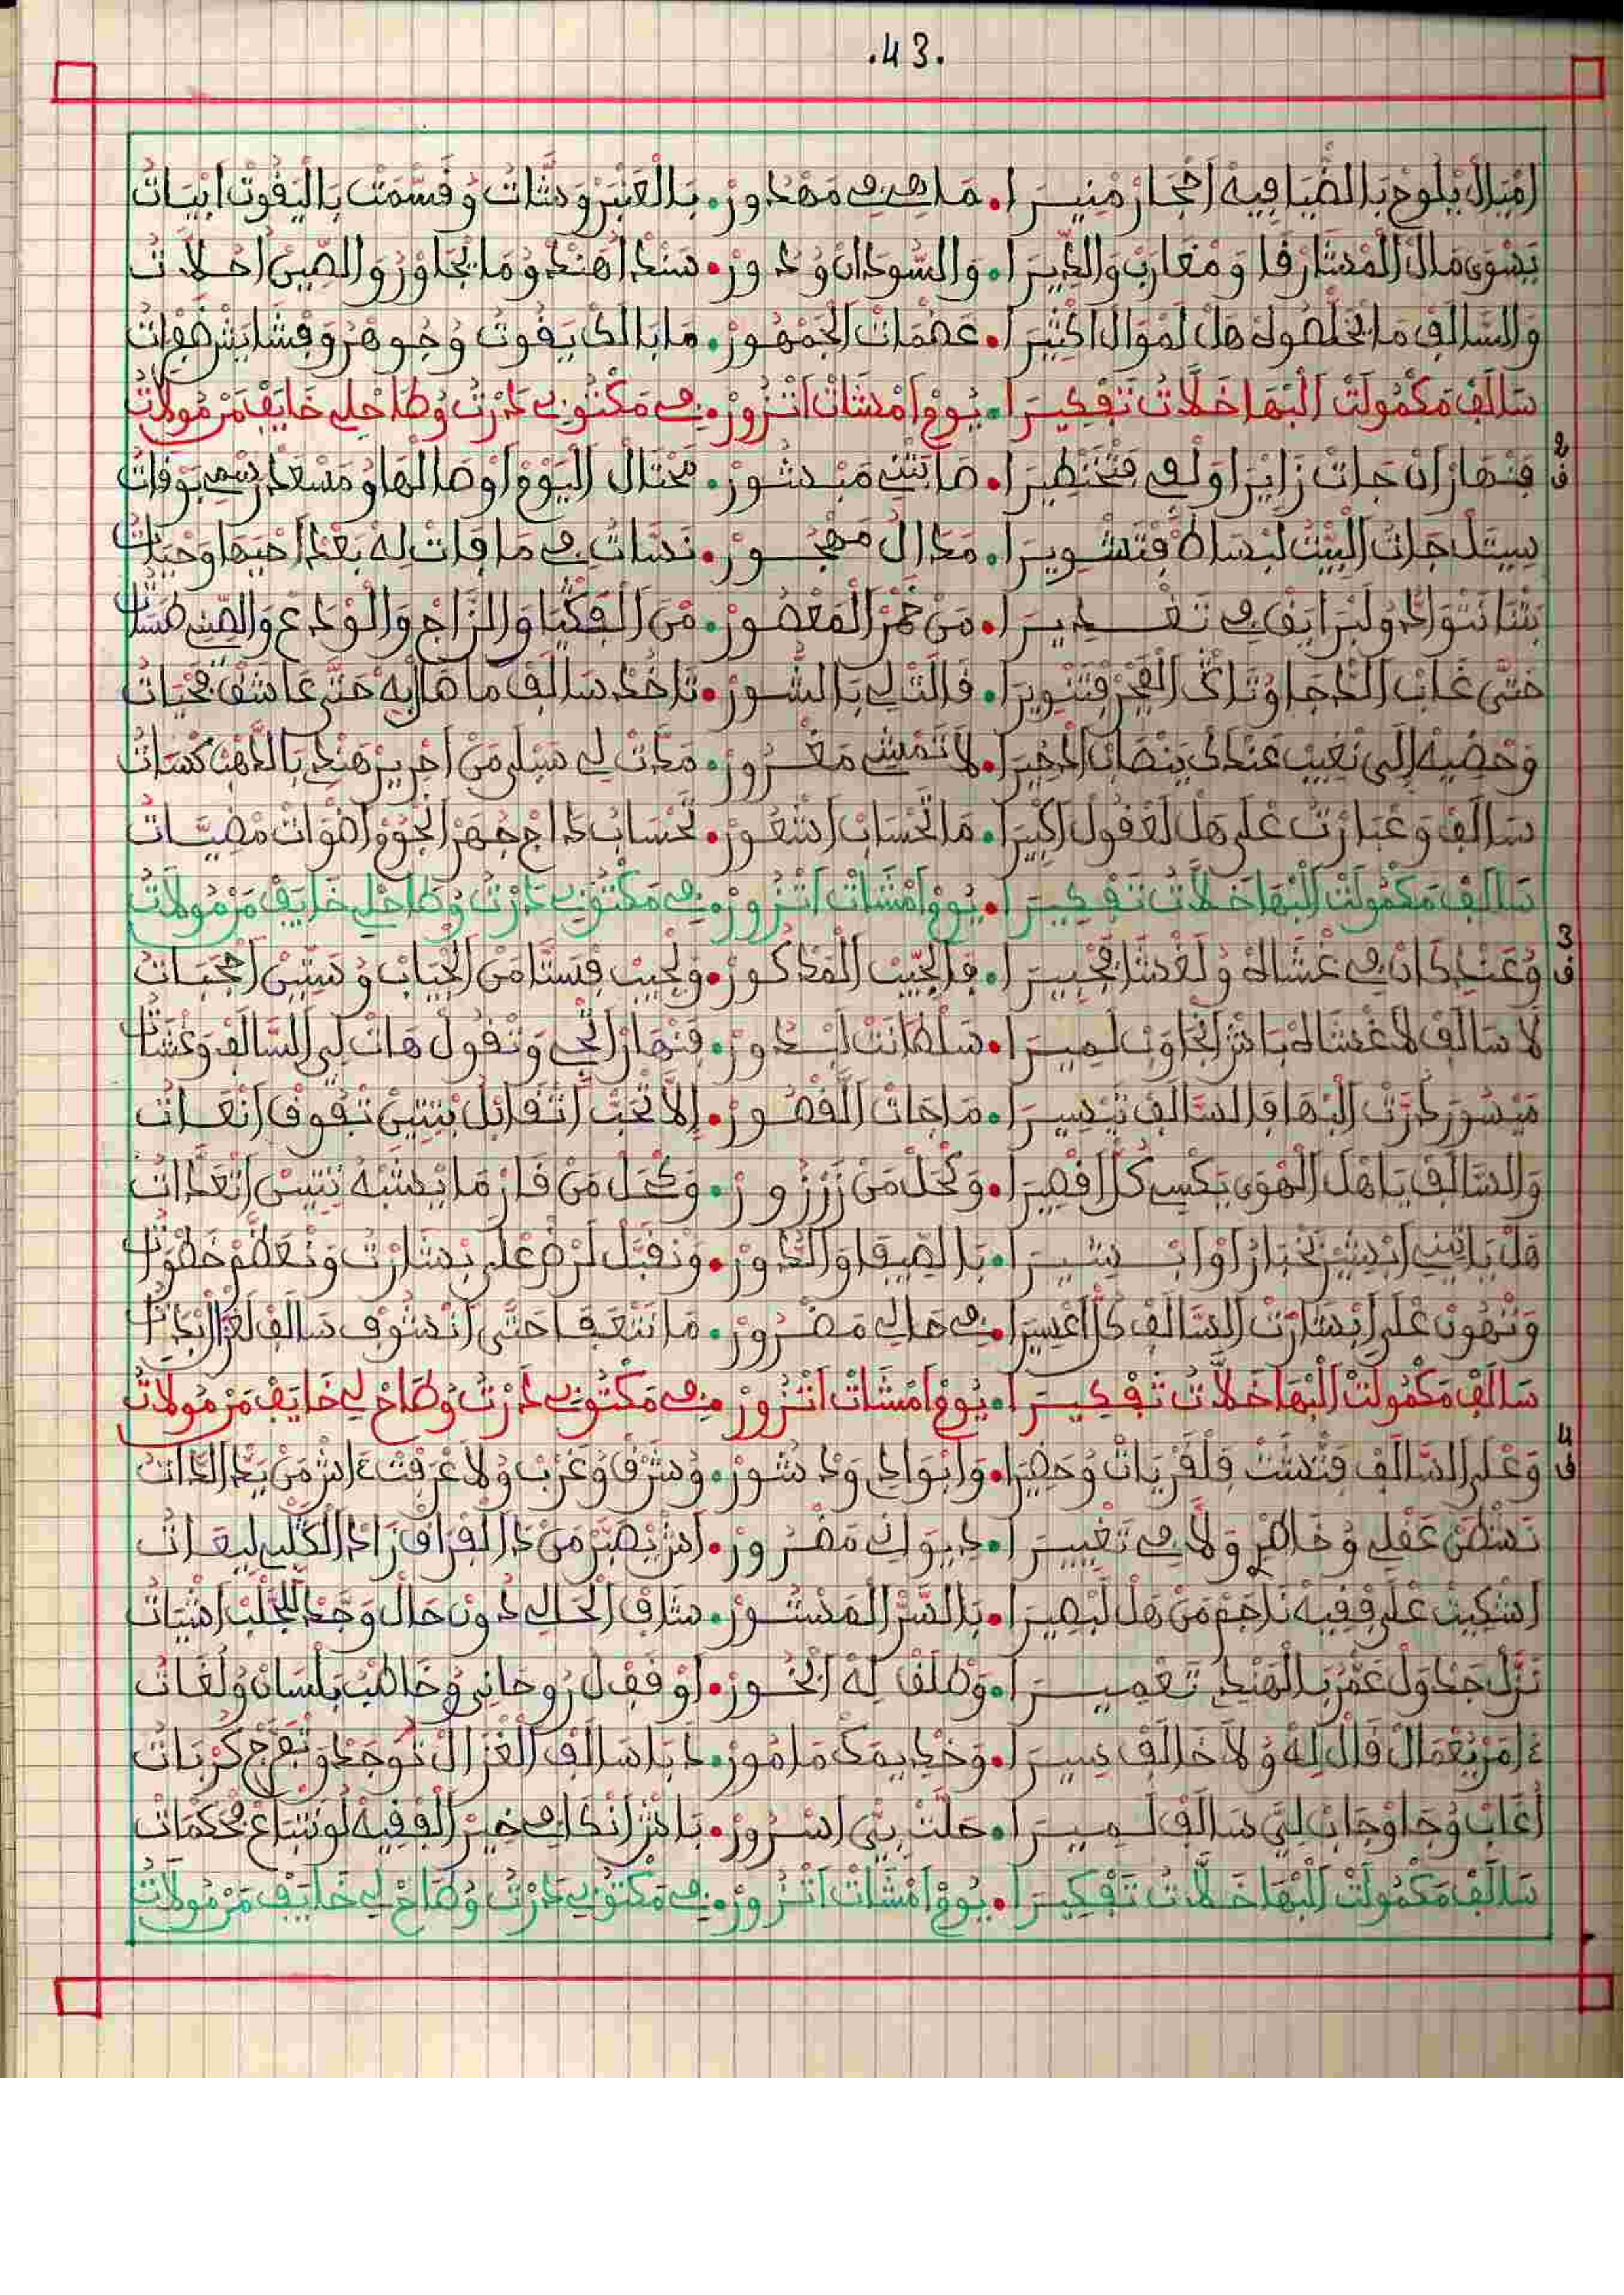 .43.
امْيَالْ يْلُوحْ بَالضْيَا فِيهْ احْجَارْ مْنِيــرَا • مَا هِي فِي مَهْدُورْ • بَالْعَنْبَرْ وَشَّاتْ وُقَسّْمَتْ بَالْيَقُوتْ ابْيَاتْ
يَسْوَى مَالْ الْمْشَارْقَا وَمْغَارَبْ وَالدِّيرَا • وَالسُّودَانْ وُدُورْ • سَنْدْ اهَنْدْ وُمَا يْجَاوْرُ وَالصِّينْ احْلَاتْ
وَالسَّالَفْ مَا يْخَلّْصُوهْ هَلْ لَمْوَالْ اكْثِيرَا • عَصْمَاتْ الْجَمْهُورْ • مَا بَالَكْ يَقُوتْ وُجُوهَرْ وَقْشَايَشْ
سَالَفْ مَكْمُولَتْ الْبْهَا خَلَّاتُ تَفْكِيــرَا • يُومْ امْشَاتْ اتْزُورْ • فِي مَكْتُوبِي دَرْتُ وُطَاحْ لِي خَايَفْ مَنْ مُولَاتُ
2
ف
فَنْهَارْ انْ جَاتْ زَايْرَا وَلْفِي • مَبْشُورْ • مَحْتَالْ الْيُومْ اوْصَالْهَا وُمَسْعَدْ رَسْمِي بَوْفَاتُ
جَاتْ الْبِيتْ لَبْسَاطْ فْتَشْوِيرَا • مَدَالْ مَهْجُــورْ • نَسَّاتْ فِي مَا فَاتْ لِهْ بَعْدْ احْيَهَا وَحْيَاتْ
بَتْنَا نَتْوَادُّو لَبْرَايَقْ فِي تَغْــدِيرَا • مَنْ خَمْرْ الْمَعْصُورْ • مَنْ الْفَكْيَا وَالزَّاجْ وَالْوْدَعْ وَالصِّينِي
حَتَّى غَابْ الدّْجَا وُتَاكْ الْفْجَرْ فْتَنْوِيرَا • قَالَتْ لِي بَالشُّورْ • تَاخُدْ سَالَفْ مَا هَالِيهْ حَتَّى عَاشَقْ
وَحْضِيهْ إِلَى نْغِيبْ عَنْدَكْ يَنْصَابْ ادْخِيرَا • لَا تَمْشِي مَغْــرُورْ • مَدَّتْ لِي سَبْلِي مَنْ احْرِيرْ هَنْدْ بَالدّْهَبْ كْسَاتْ
سَالَفْ وَعْبَارْتُ عْلَى هَلْ لَعْقُولْ اكْبِيرَا • مَا تَحْسَابْ اشْعُورْ • تَحْسَابْ دَاجْ جْهَرْ الْجُومْ اضْوَاتْ مْضِيَّاتْ
سَالَفْ مَكْمُولَتْ الْبْهَا خَلَّاتُ تَفْكِيــرَا • يُومْ امْشَاتْ اتْزُورْ • فِي مَكْتُوبِي دَرْتُ وُطَاحْ لِي خَايَفْ مَنْ مُولَاتُ
3
ف
وُعَنْدِي كَانْ فِي غْشَاهْ وُلَغْشَا فْجْبِيــرَا • فَالْجِيبْ الْمَدْكُورْ • وَلْجِيبْ فْسَتَّا مَنْ الْجْيَابْ وُسَتِّينْ احْجْبَاتْ
لَا سَالَفْ لَا غْشَاهْ بَاشْ انْجَاوَبْ لَمِيــرَا • سَلْطَانَتْ لَبْــدُورْ • فَنْهَارْ اتْجِي وَتْقُولْ هَاتْ لِي السَّالَفْ وَغْشَاتْ
مَيْسُورْ دَرْتْ الْبْهَا فَالسَّالَفْ تَيْسِيــرَا • مَا جَاتْ الْقْصُورْ • إِلَّا تْحَبّْ اتْقَابَلْ بَيْتِينْ تْفُوقْ انْعَــاتْ
وَالسَّالَفْ يَا هَلْ الْهْوَى يَكْسِي كُلّْ اقْصِيرَا • وَكْحَلْ مَنْ زَرْزُورْ • وَكْحَــلْ مَنْ قَارْ مَا يْشَبْهُ نَتِيسْ اتْعَدَّاتْ
هَلْ يَاتِينِي ابْشِيرْ بَخْبَارُ اوْ ابْــشِيــرَا • بَالصِّيفَا وَالدُّورْ • وَنْقَبَّلْ لَرْضْ عْلَى بْشَارْتُ وَنْعَظَّمْ خَطْوَاتْ
وَنْهُونْ عْلَى ابْشَارْتْ السَّالَفْ كُلّْ اعْسِيرَا • فِي حَالِي مَضْــرُورْ • مَا نَتْعَفَا حَتَّى انْشُوفْ سَالَفْ لَغْزَالْ
سَالَفْ مَكْمُولَتْ الْبْهَا خَلَّاتُ تَفْكِيــرَا • يُومْ امْشَاتْ اتْزُورْ • فِي مَكْتُوبِي دَرْتُ وُطَاحْ لِي خَايَفْ مَنْ مُولَاتُ
4
ف
وَعْلَى السَّالَفْ فَتَّشْتْ فَلْقَرْيَاتْ وُحَضِيرَا • وَابْوَادِي وَدْشُورْ • وُشَرْقْ وُغَرْبْ وُلَا عْرَفْتْ اشْ مَنْ يَدّْ ادَّاتْ
نَشْطَنْ عَقْلِي وُخَاطْرِي وَلَّا فِي تَغْيِيــرَا • دِيوَانِي مَضْــرُورْ • اشْ يْصَبَّرْ مَنْ دَا الْفْرَاقْ زَادْ الْكَلْبِي لِيعَــاتْ
اشْكِيتْ عْلَى فْقِيهْ نَاجَمْ مَنْ هَلْ لَبْصِيرَا • بَالسَّرّْ الْمَنْشُــورْ • شَافْ الْحَالِي دُونْ حَالْ وَجْدْ اشْيَاتْ
نَزَّلْ جَدْوَلْ عَمَّرْ بَالْهَنْدِي تَعْمِيــرَا • وَطْلَقْ لِهْ الْبْخُــورْ • اوْقَفْ لُ رُوحَانِي وُخَاطْبُ بَلْسَانْ وُلْغَاتْ
امَرْ يُعْمَالْ قَالْ لِهْ وُلَا خَالَفْ سِيــرَا • وَخْدِيمَكْ مَامُورْ • دَابَا سَالَفْ الْغْزَالْ نُوجْدُ وَنْفَرَّجْ كُرْبَاتْ
اغَابْ وُجَا وْجَابْ لِيَّ سَالَفْ لَــمِيــرَا • حَلَّتْ بِيَّ اسْــرُورْ • بَاشْ انْكَافِي خِيرْ الْفْقِيهْ لُو نَتْبَاعْ مْحَكْمَاتْ
سَالَفْ مَكْمُولَتْ الْبْهَا خَلَّاتُ تَفْكِيــرَا • يُومْ امْشَاتْ اتْزُورْ • فِي مَكْتُوبِي دَرْتُ وُطَاحْ لِي خَايَفْ مَنْ مُولَاتُ